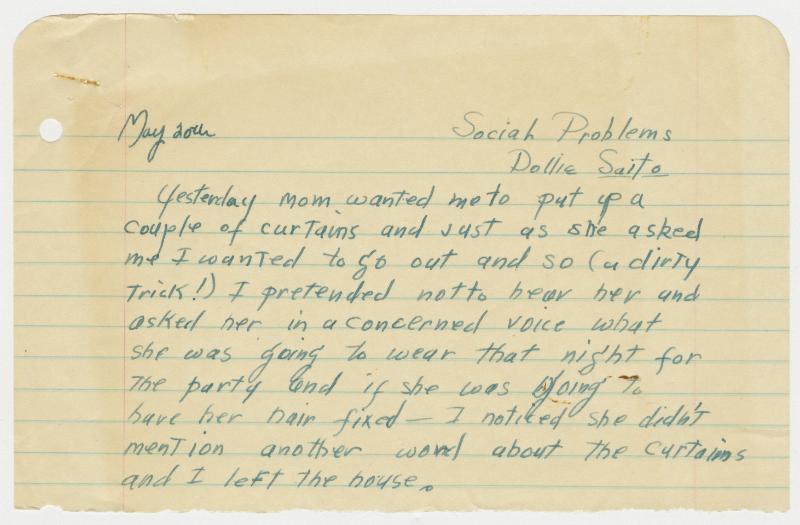 May 20th
Social Problems
Dollie Saito
Yesterday mom wanted me to put up a
couple of curtains and just as she asked
me I wanted to go out and so (a dirty
trick!) I pretended not to hear her and
asked her in a concerned voice what
she was going to wear that night for
the party and if she was going to
have her hair fixed — I noticed she didn't
mention another word about the curtains
and I left the house.